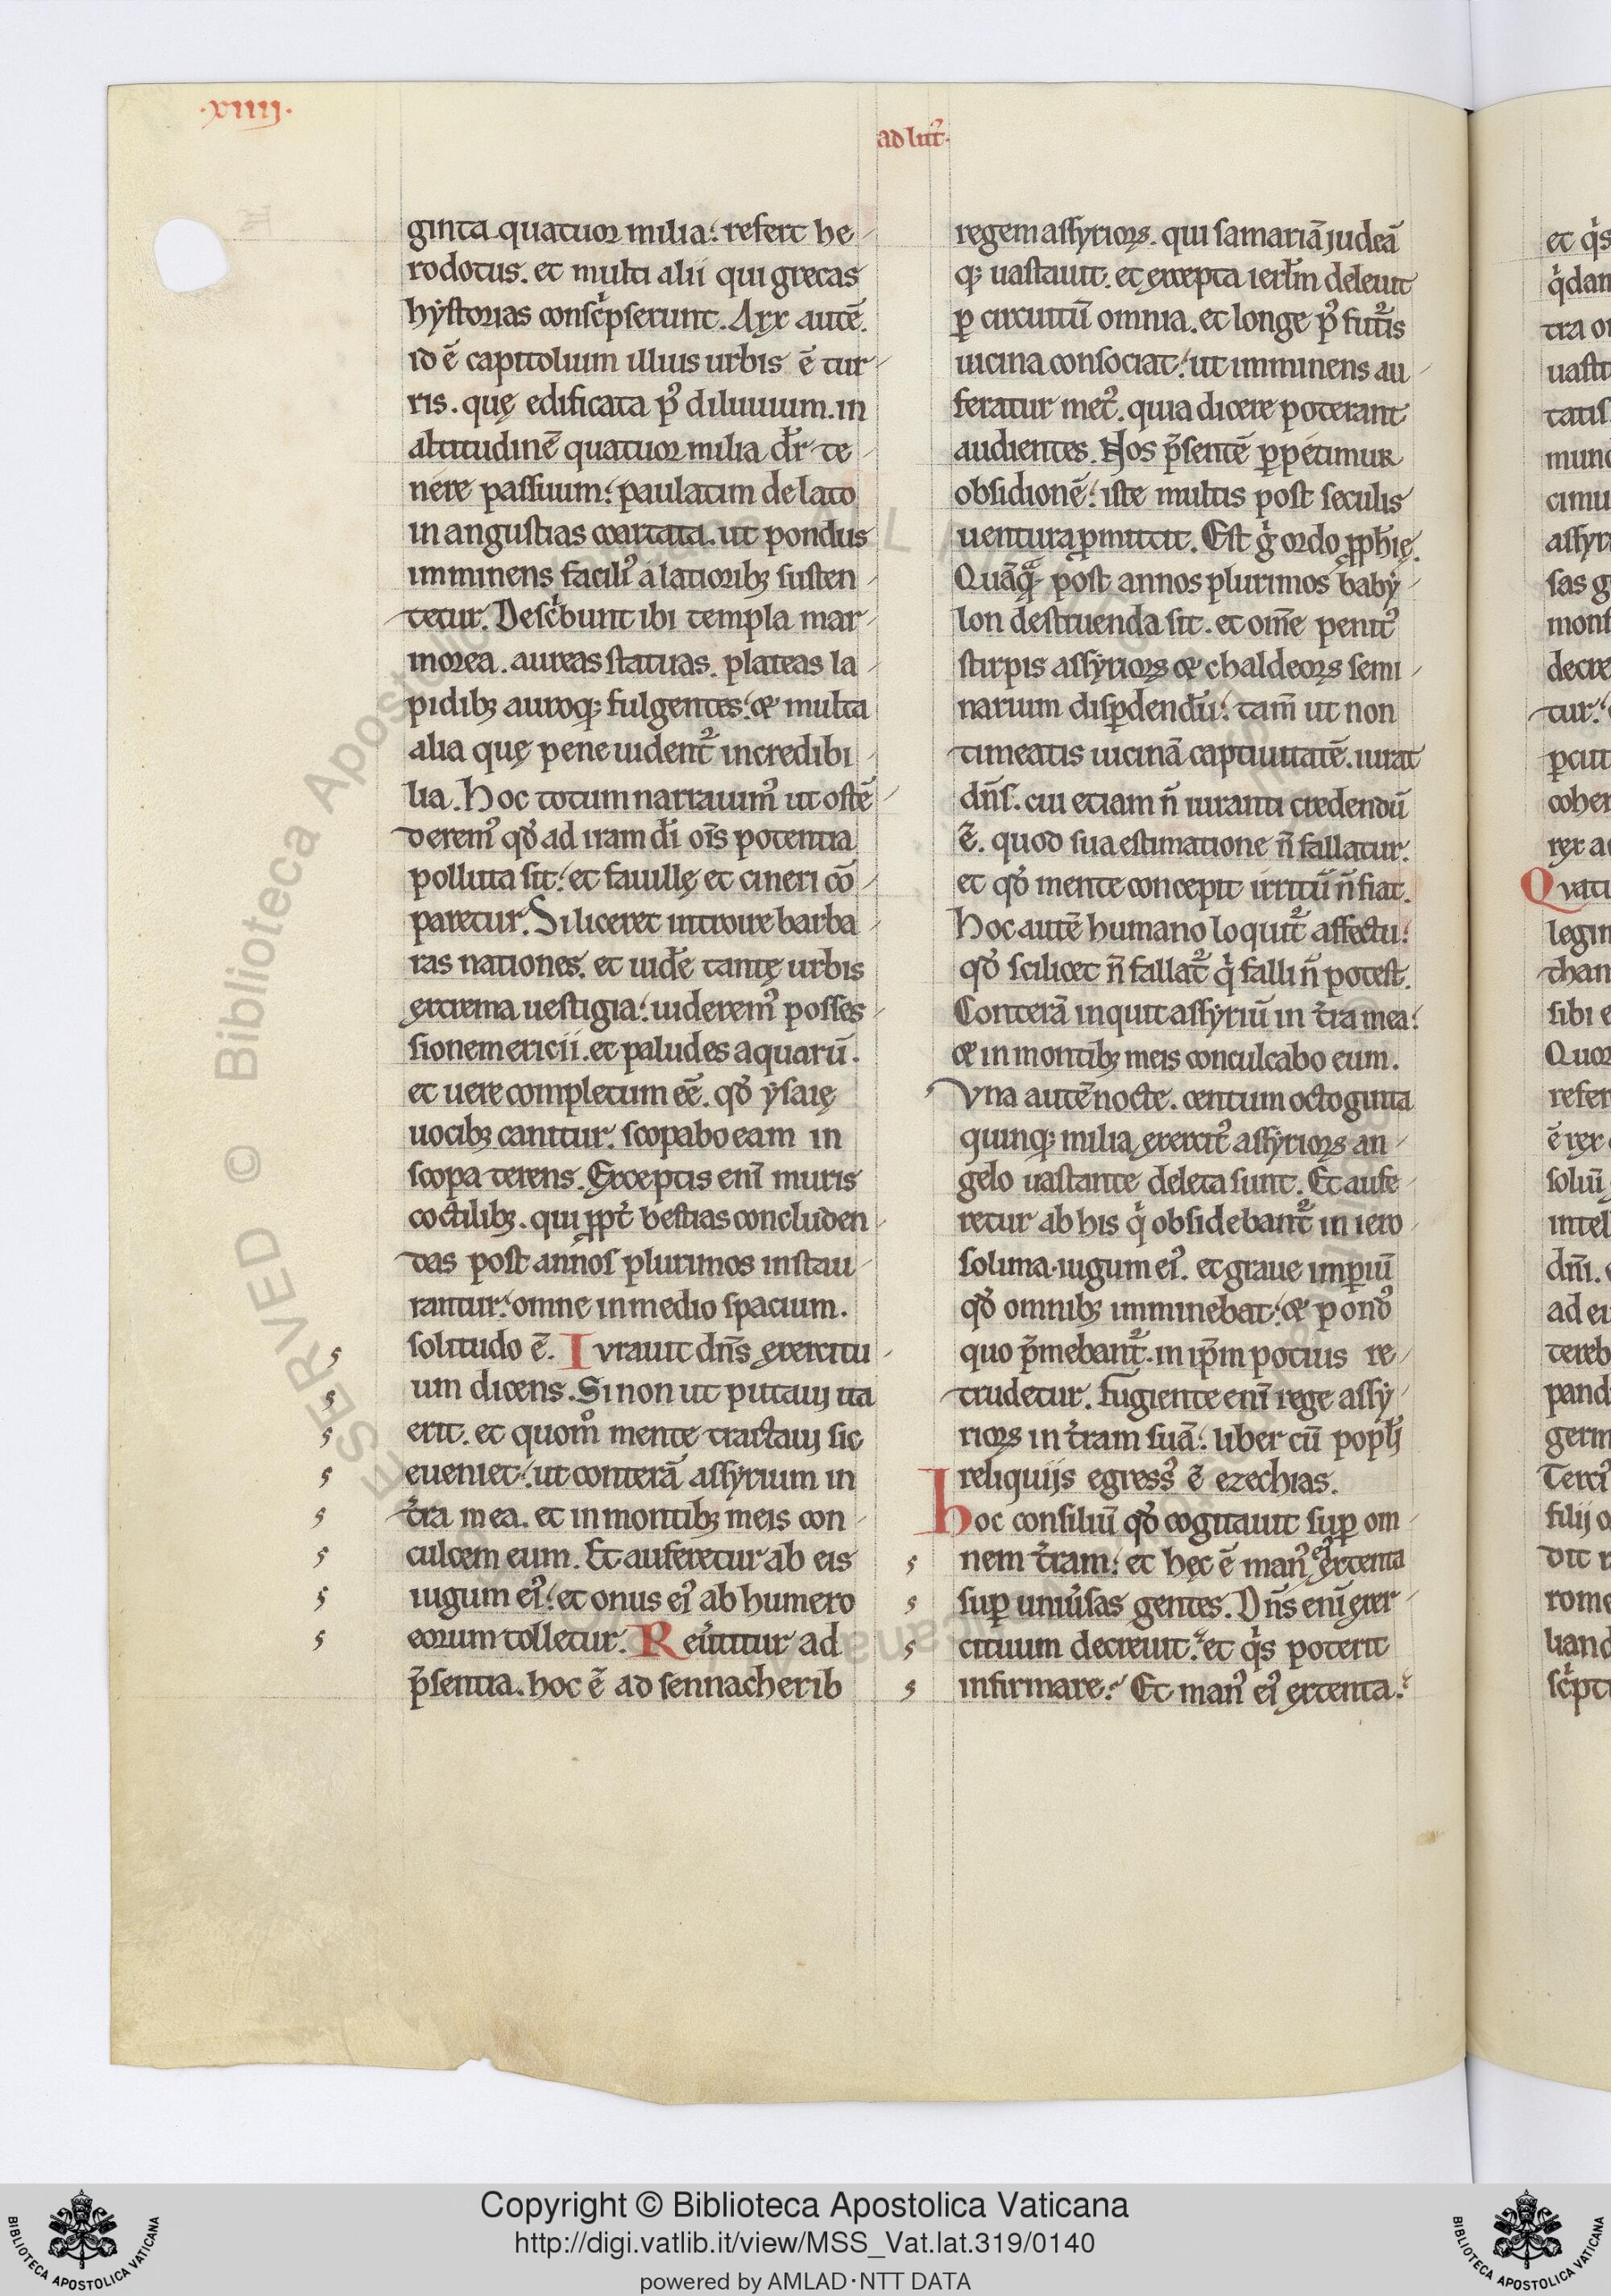 ·xiiij·
ad litt᷑·
ginta quatuor milia: refert he
rodotus. et multi alii qui grecas
hystorias consc͛pserunt. Arx autē.
id ē capitolium illius urbis ē tur
ris. quę edificata p᷒ diluuium. in
altitudinē quatuor milia dr̄ te
nere passuum: paulatim de lato
in angustias coartata. ut pondus
imminens facili᷒ a latiorib; susten
tetur. Desc͛bunt ibi templa mar
morea. aureas statuas. plateas la
pidib; auroq; fulgentes: & multa
alia quę pene uident᷑ incredibi
lia. Hoc totum narrauim᷒ ut ostē
derem᷒ qđ ad iram dī oīs potentia
polluta sit: et fauillę et cineri cō
paretur. Si liceret introire barba
ras nationes. et uid̄e tantę urbis
extrema uestigia: uiderem᷒ posses
sionem ericii. et paludes aquarū.
et uere completum eē. qđ ysaię
uocib; canitur. scopabo eam in
scopa terens. Exceptis enī muris
coctilib;. qui ꝓpt̄ bestias concluden
das post annos plurimos instau
rantur: omne in medio spacium.
solitudo ē. Iurauit dn̄s exercitu
um dicens. Si non ut putauj ita
erit. et quom̊ mente tractauj sic
eueniet: ut conterā assyrium in
t̄ra mea. et in montib; meis con
culcem eum. Et auferetur ab eis
iugum ei᷒: et onus ei᷒ ab humero
eorum tolletur. Reūtitur ad
p̄sentia. hoc ē ad sennacherib
regem assyrioꝝ. qui samariā judeā
q; uastauit. et excepta ierl̄m deleuit
ꝑ circuitū omnia. et longe p᷒ fut᷑is
uicina consociat: ut imminens au
feratur met᷒. quia dicere poterant
audientes. Nos p̄sentē ꝑpetimur
obsidionē: iste multis post seculis
uentura ꝑmittit. Est g̊ ordo ꝓphię.
Quāq̄ post annos plurimos baby
lon destruenda sit. et om̄e penit᷒
stirpis assyrioꝝ & chaldeoꝝ semi
narium disꝑdendū: tam̄ ut non
timeatis uicinā captiuitatē. iurat
dn̄s. cui etiam n̄ iuranti credendū
ē. quod sua estimatione n̄ fallatur.
et qđ mente concepit irritū n̄ fiat.
Hoc autē humano loquit᷑ affectu:
qđ scilicet n̄ fallat᷑ q͛ falli n̄ potest.
Conterā inquit assyriū in t̄ra mea:
& in montib; meis conculcabo eum.
Vna autē nocte. centum octoginta
quinq; milia exercit᷒ assyrioꝝ an
gelo uastante deleta sunt. Et aufe
retur ab his q͛ obsidebant᷑ in iero
solima. iugum ei᷒. et graue imꝑiū
qđ omnib; imminebat: & pond᷒
quo p̄mebant᷑. in ip̄m potius re
trudetur. Fugiente enī rege assy
rioꝝ in t̄ram suā: liber cū popl̄j
reliquijs egress᷒ ē ezechias.
hoc consiliū qđ cogitauit suꝑ om
nem t̄ram: et hęc ē man᷒ extenta
suꝑ uniūsas gentes. Dn̄s enī exer
cituum decreuit: et q͛s poterit
infirmare: Et man᷒ ei᷒ extenta:
Copyright © Biblioteca Apostolica Vaticana
http://digi.vatlib.it/view/MSS_Vat.lat.319/0140
powered by AMLAD·NTT DATA
BIBLIOTECA APOSTOLICA VATICANA
BIBLIOTECA APOSTOLICA VATICANA